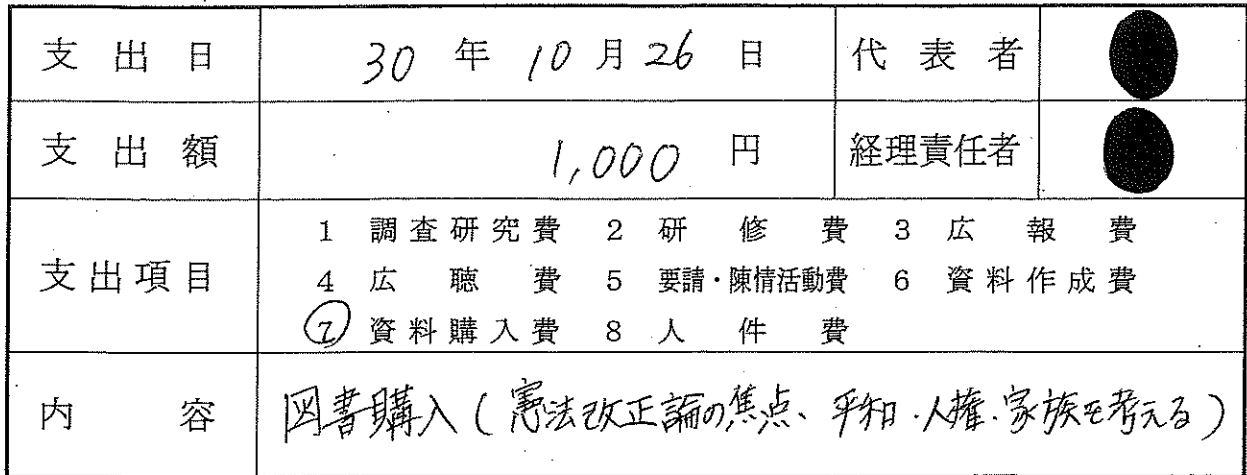 支出日 30年10月26日 代表者
支出額 1,000円 経理責任者
支出項目
1 調査研究費 2 研修費 3 広報費
4 広聴費 5 要請・陳情活動費 6 資料作成費
7 資料購入費 8 人件費
内容 図書購入(憲法改正論の焦点、平和・人権・家族を考える)